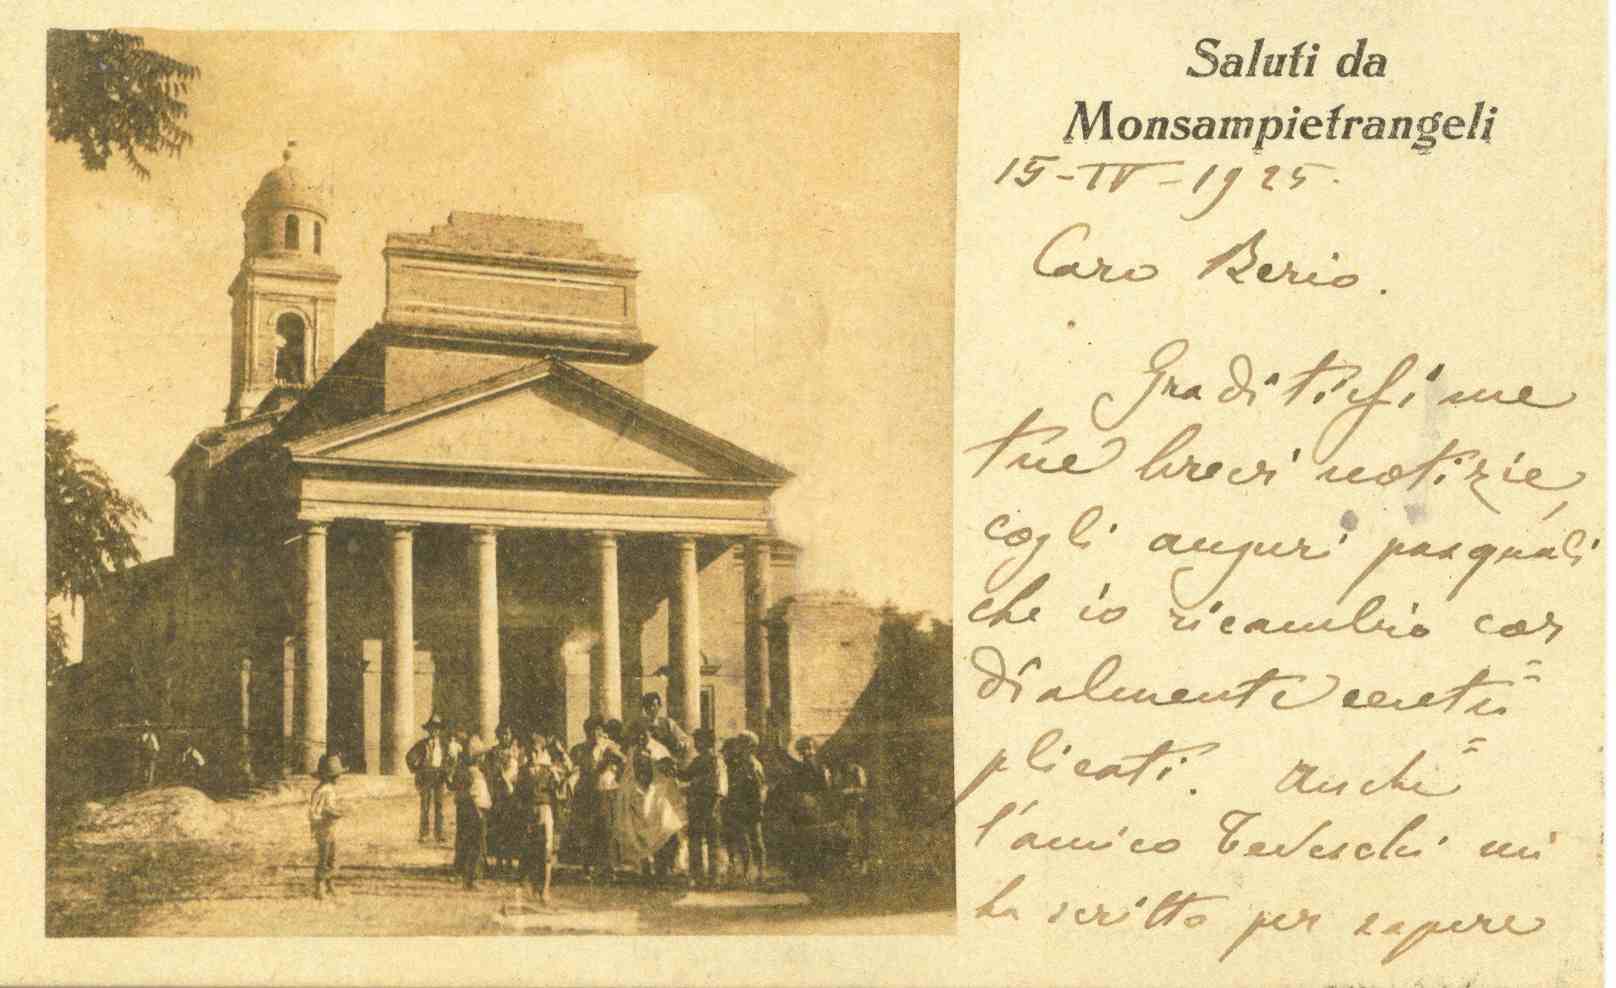 Saluti da
Monsampietrangeli
15-IV-1925.
Caro Berio.
Graditissime
tue brevi notizie,
cogli auguri pasquali
che io ricambio cor
dialmente centu=
plicati. Anche
l'amico Tedeschi mi
ha scritto per sapere